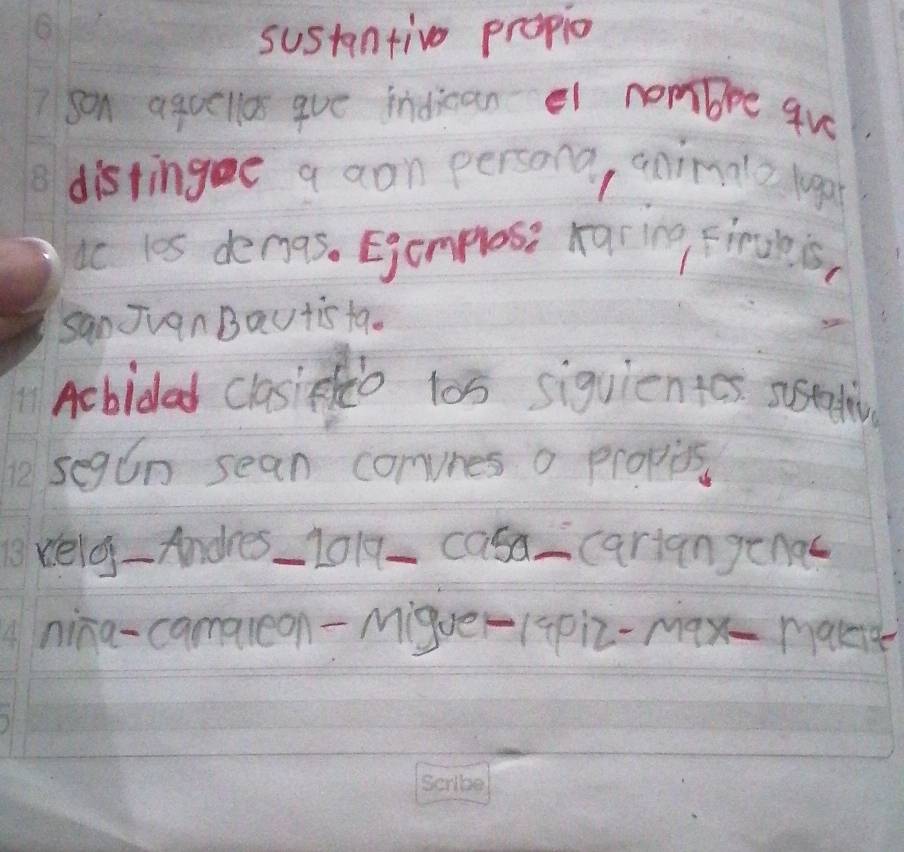 sustantivo propio
son aquellos que indican el nombre que
distingue a aon persona, animal o lugar
de los demas. Ejemplos: Karina, Firulais,
san Juan Bautista.
Acbidad Clasifico los siguientes sustantivo
según sean comunes o propios.
relog - Andres - Lola - casa - cartangena -
niña - camaleon - Miguel - lapiz - Max - Maria -
Scribe